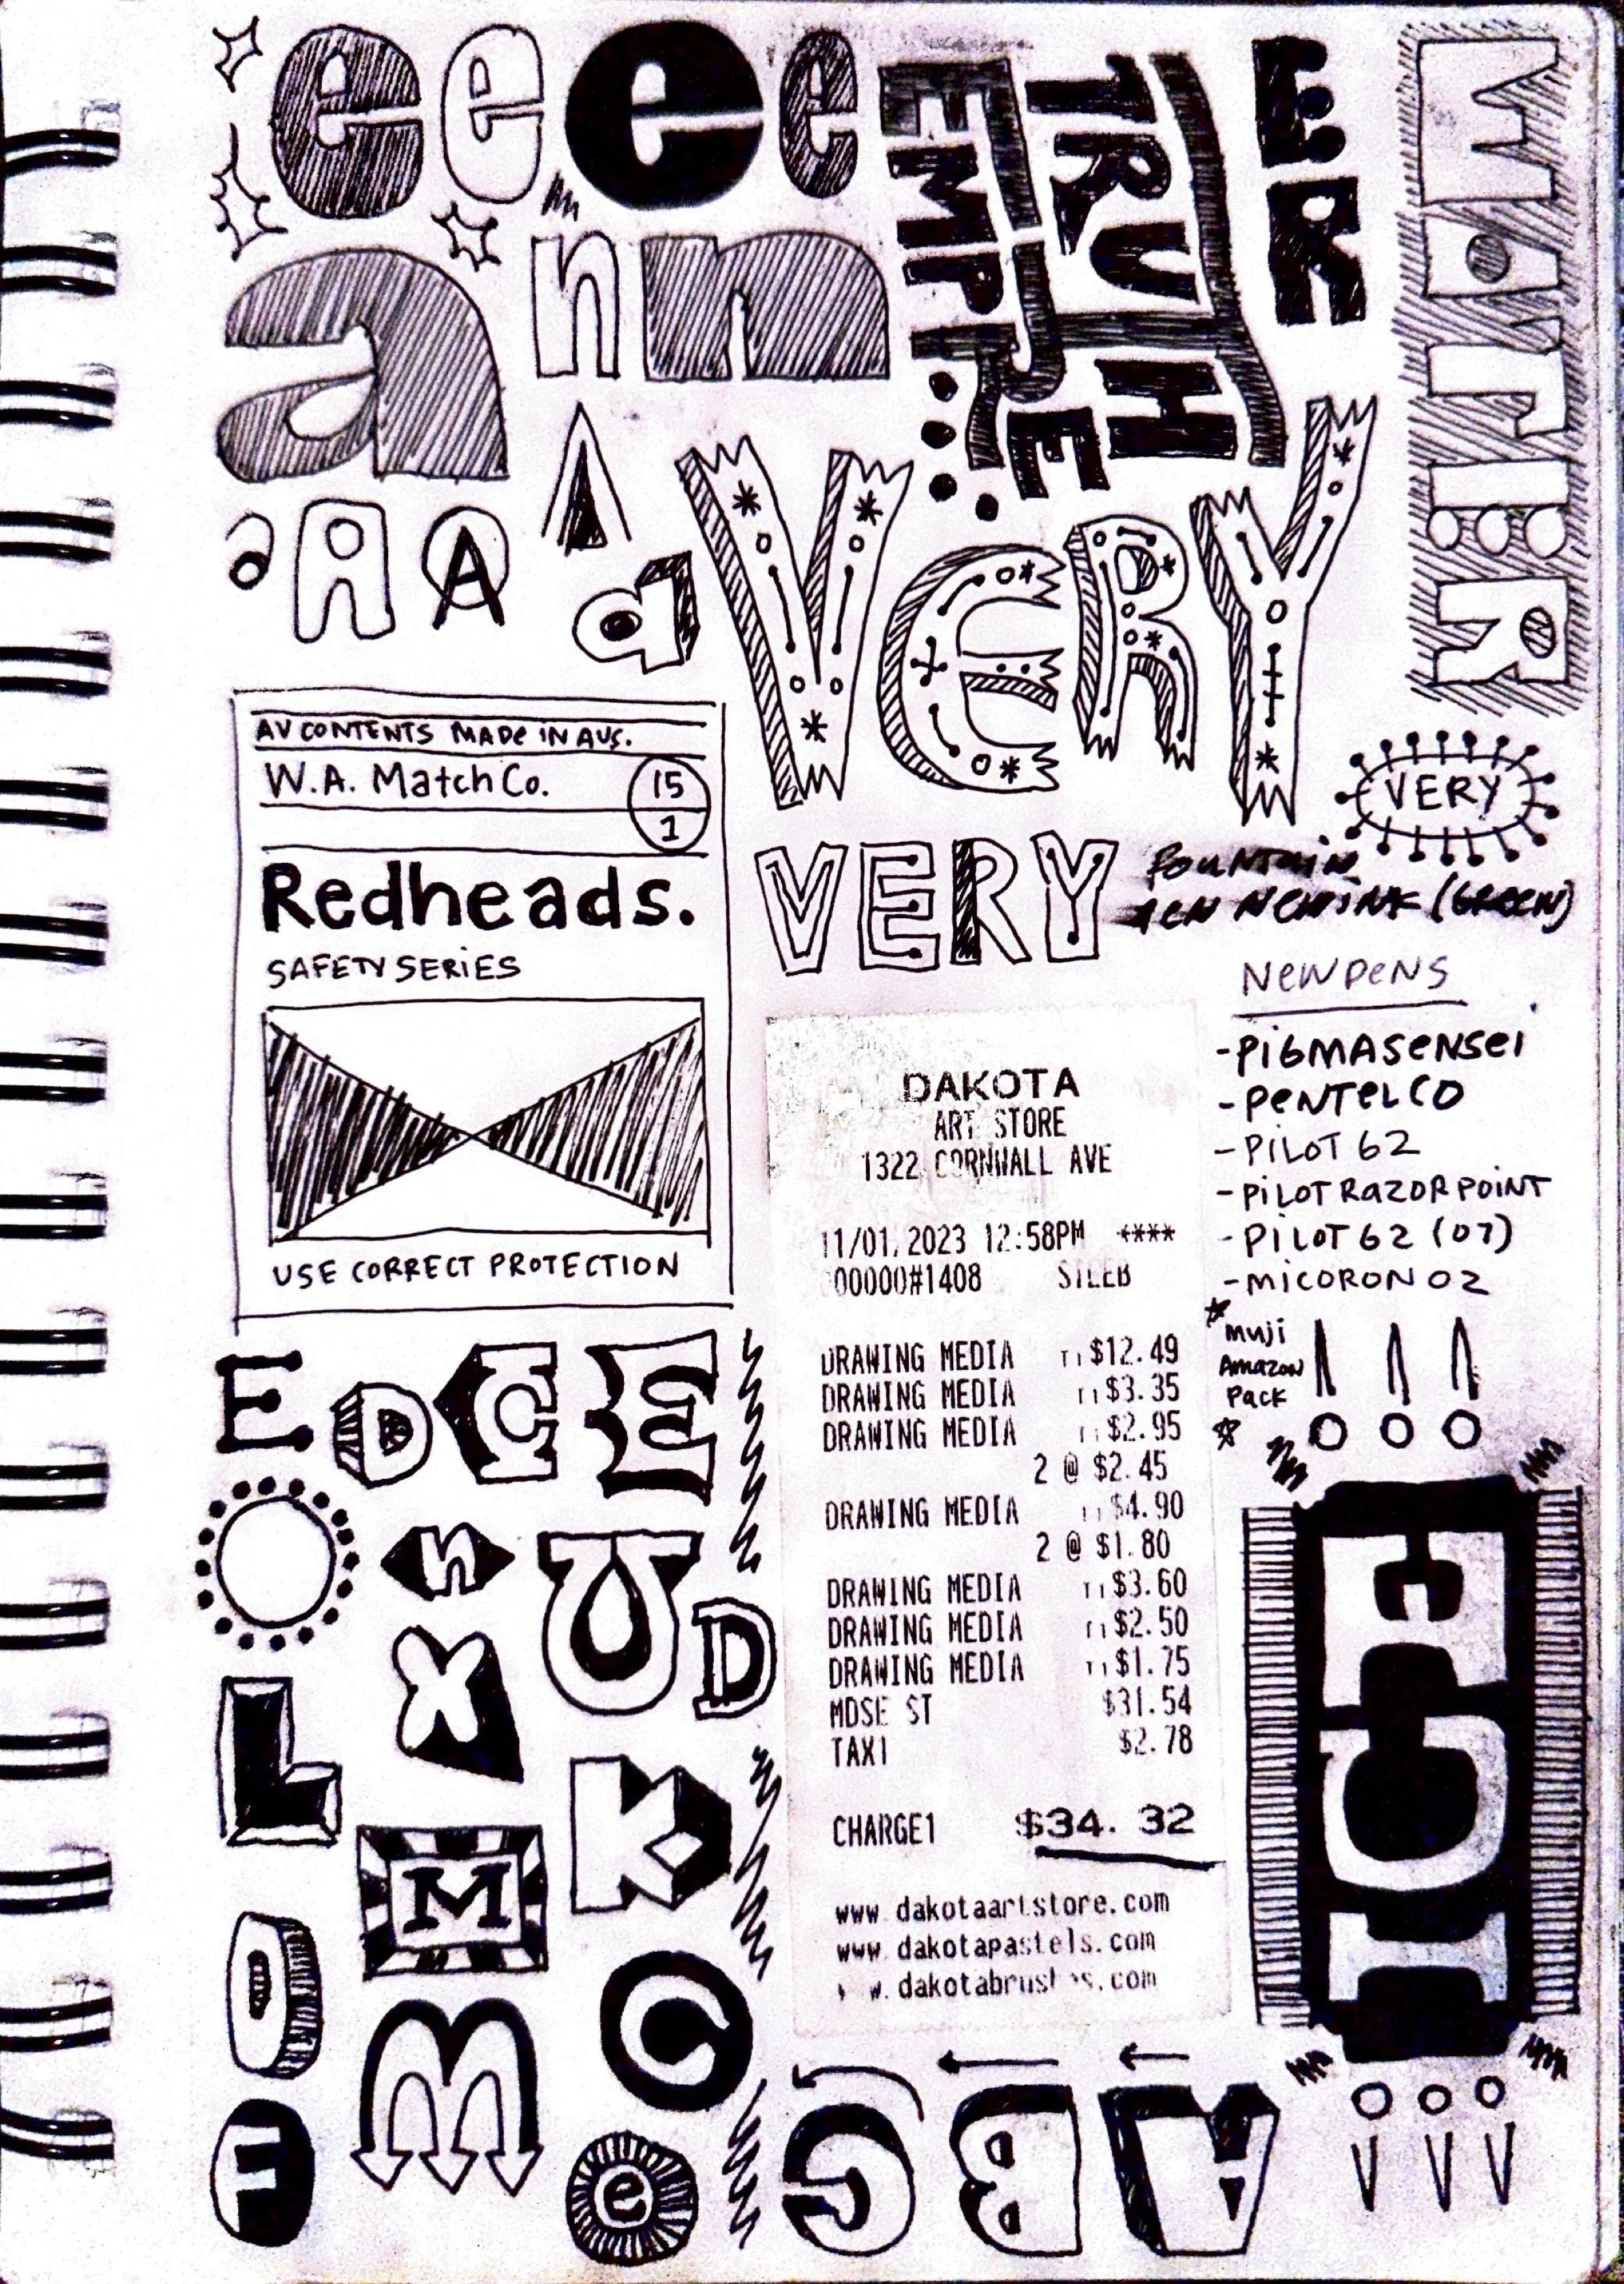 e e e e
a n n
EMPIRE
TRUTH
ER
WATER
a A A A a
VERY
VERY
AV CONTENTS MADE IN AUS.
W.A. Match Co. 15
1
Redheads.
SAFETY SERIES
USE CORRECT PROTECTION
VERY
FOUNTAIN
PEN NEW INK (GREEN)
NEW PENS
-PIGMA SENSEI
-PENTEL CO
-PILOT G2
-PILOT RAZOR POINT
-PILOT G2 (07)
-MICORON 02
Muji
Amazon
Pack
DAKOTA
ART STORE
1322 CORNWALL AVE
11/01/2023 12:58PM ****
00000#1408
DRAWING MEDIA T1 $12.49
DRAWING MEDIA T1 $3.35
DRAWING MEDIA T1 $2.95
2 @ $2.45
DRAWING MEDIA T1 $4.90
2 @ $1.80
DRAWING MEDIA T1 $3.60
DRAWING MEDIA T1 $2.50
DRAWING MEDIA T1 $1.75
MDSE ST $31.54
TAX1 $2.78
CHARGE1 $34.32
www.dakotaartstore.com
www.dakotapastels.com
www.dakotabrushes.com
E D C E
O n U
X D
L
M K
O
m C
F e
ABC
ICE